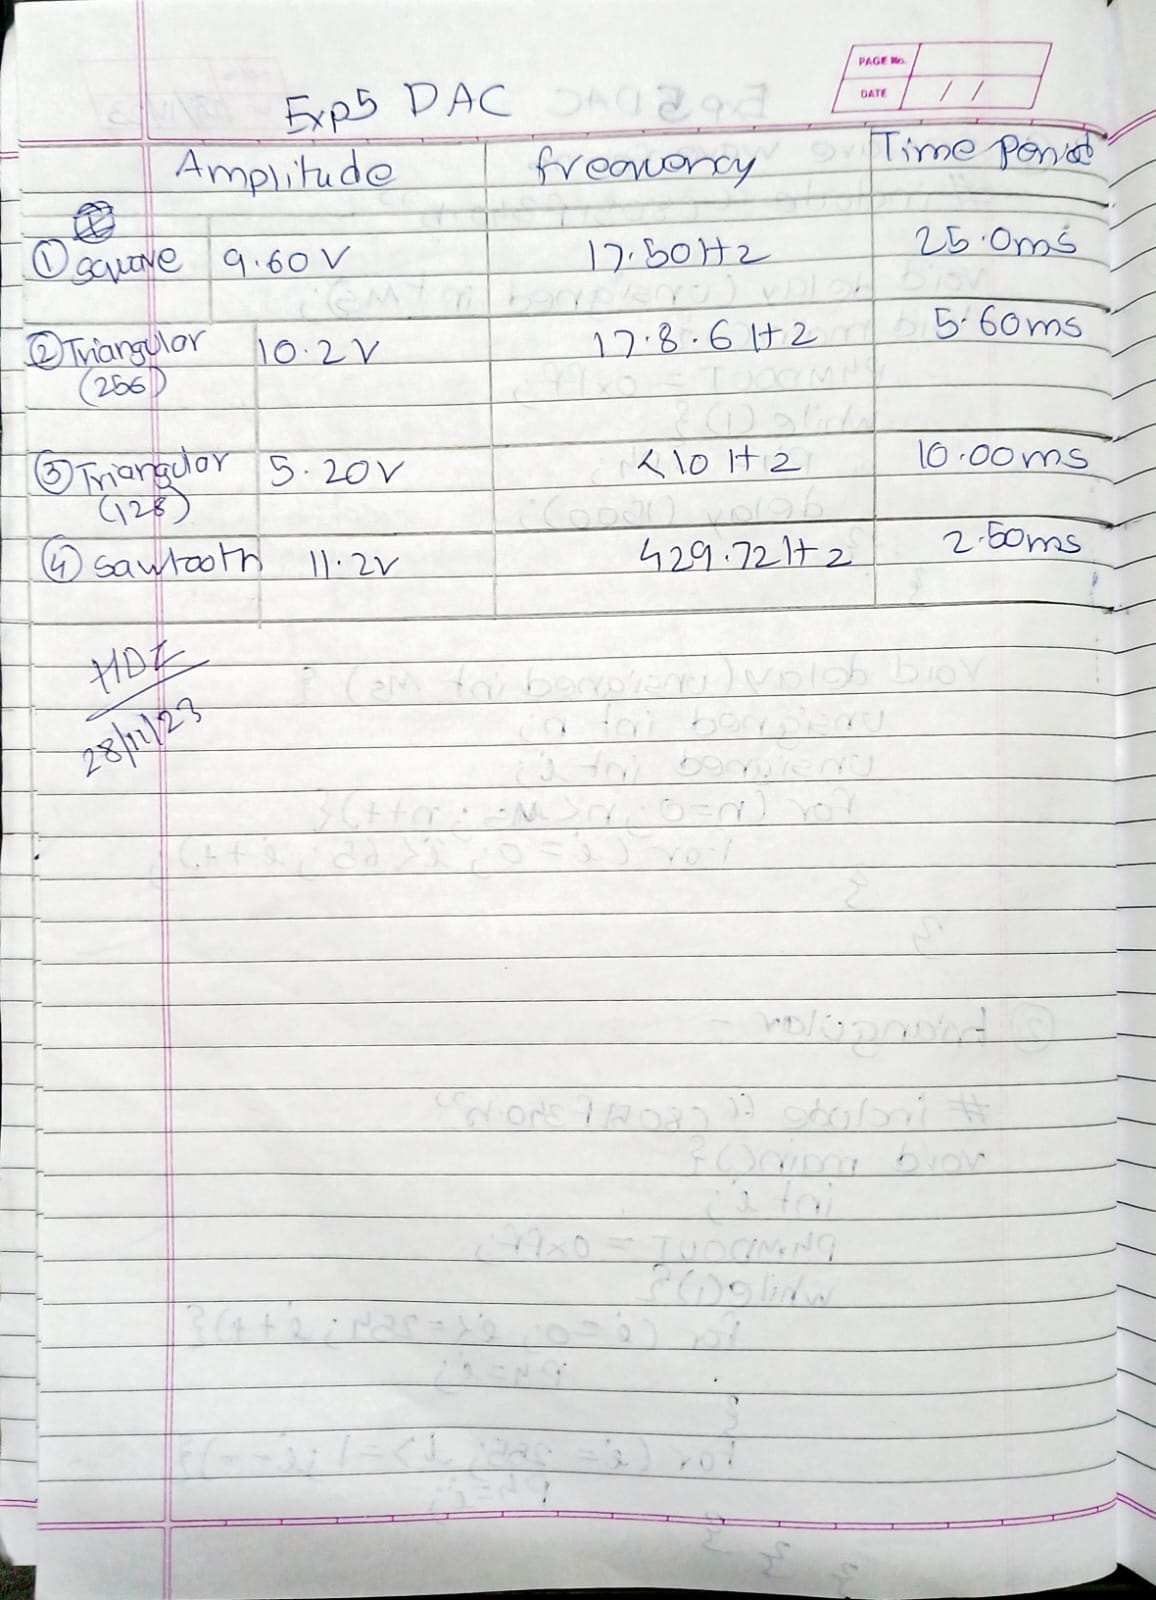 PAGE No.
DATE / /
Exp5 DAC
Amplitude frequency Time Period
① square 9.60V 17.50Hz 25.0ms
② Triangular 10.2V 17.8.6Hz 5.60ms
(256)
③ Triangular 5.20V <10Hz 10.00ms
(128)
④ sawtooth 11.2V 429.72Hz 2.50ms
28/11/23